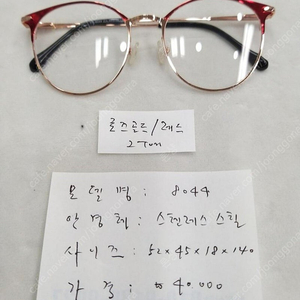 로즈골드/레드
27mm
모델명 : 8044
안경테 : 스텐레스 스틸
사이즈 : 52×45×18×140
가격 : ₩40,000